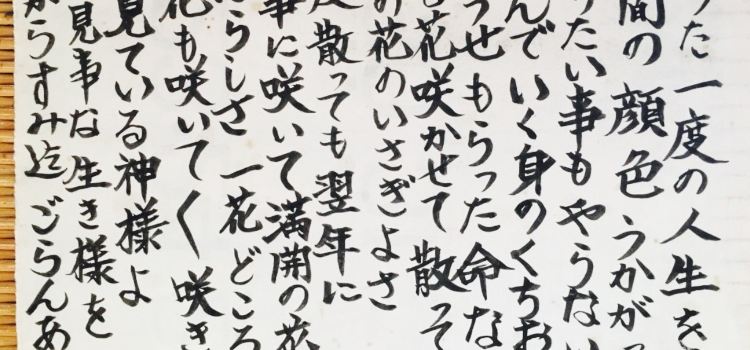 った一度の人生を
間の顔色うかが
りたい事もやらない
んでいく身のくちお
うせもらった命な
花咲かせて散って
の花のいさぎよさ
散っても翌年に
事に咲いて満開の花
らしさ 一花どころ
花も咲いてく 咲き
見ている神様よ
見事な生き様を
からすみ迄ごらんあ